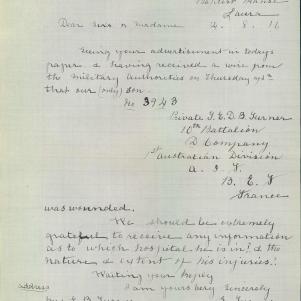 Baptist Manse
Laura
Dear Sirs or Madame 2.8.16
Seeing your advertisement in todays
paper & having received a wire from
the Military Authorities on Thursday
that our (only) son.
No 3943
Private J. E. D. B. Turner
10th Battalion
D Company
1st Australian Division
A. I. F
B. E. F
France
was wounded.
We should be extremely
grateful to receive any information
as to which hospital he is in! & the
nature & extent of his injuries!
Waiting your reply
I am yours very Sincerely
address